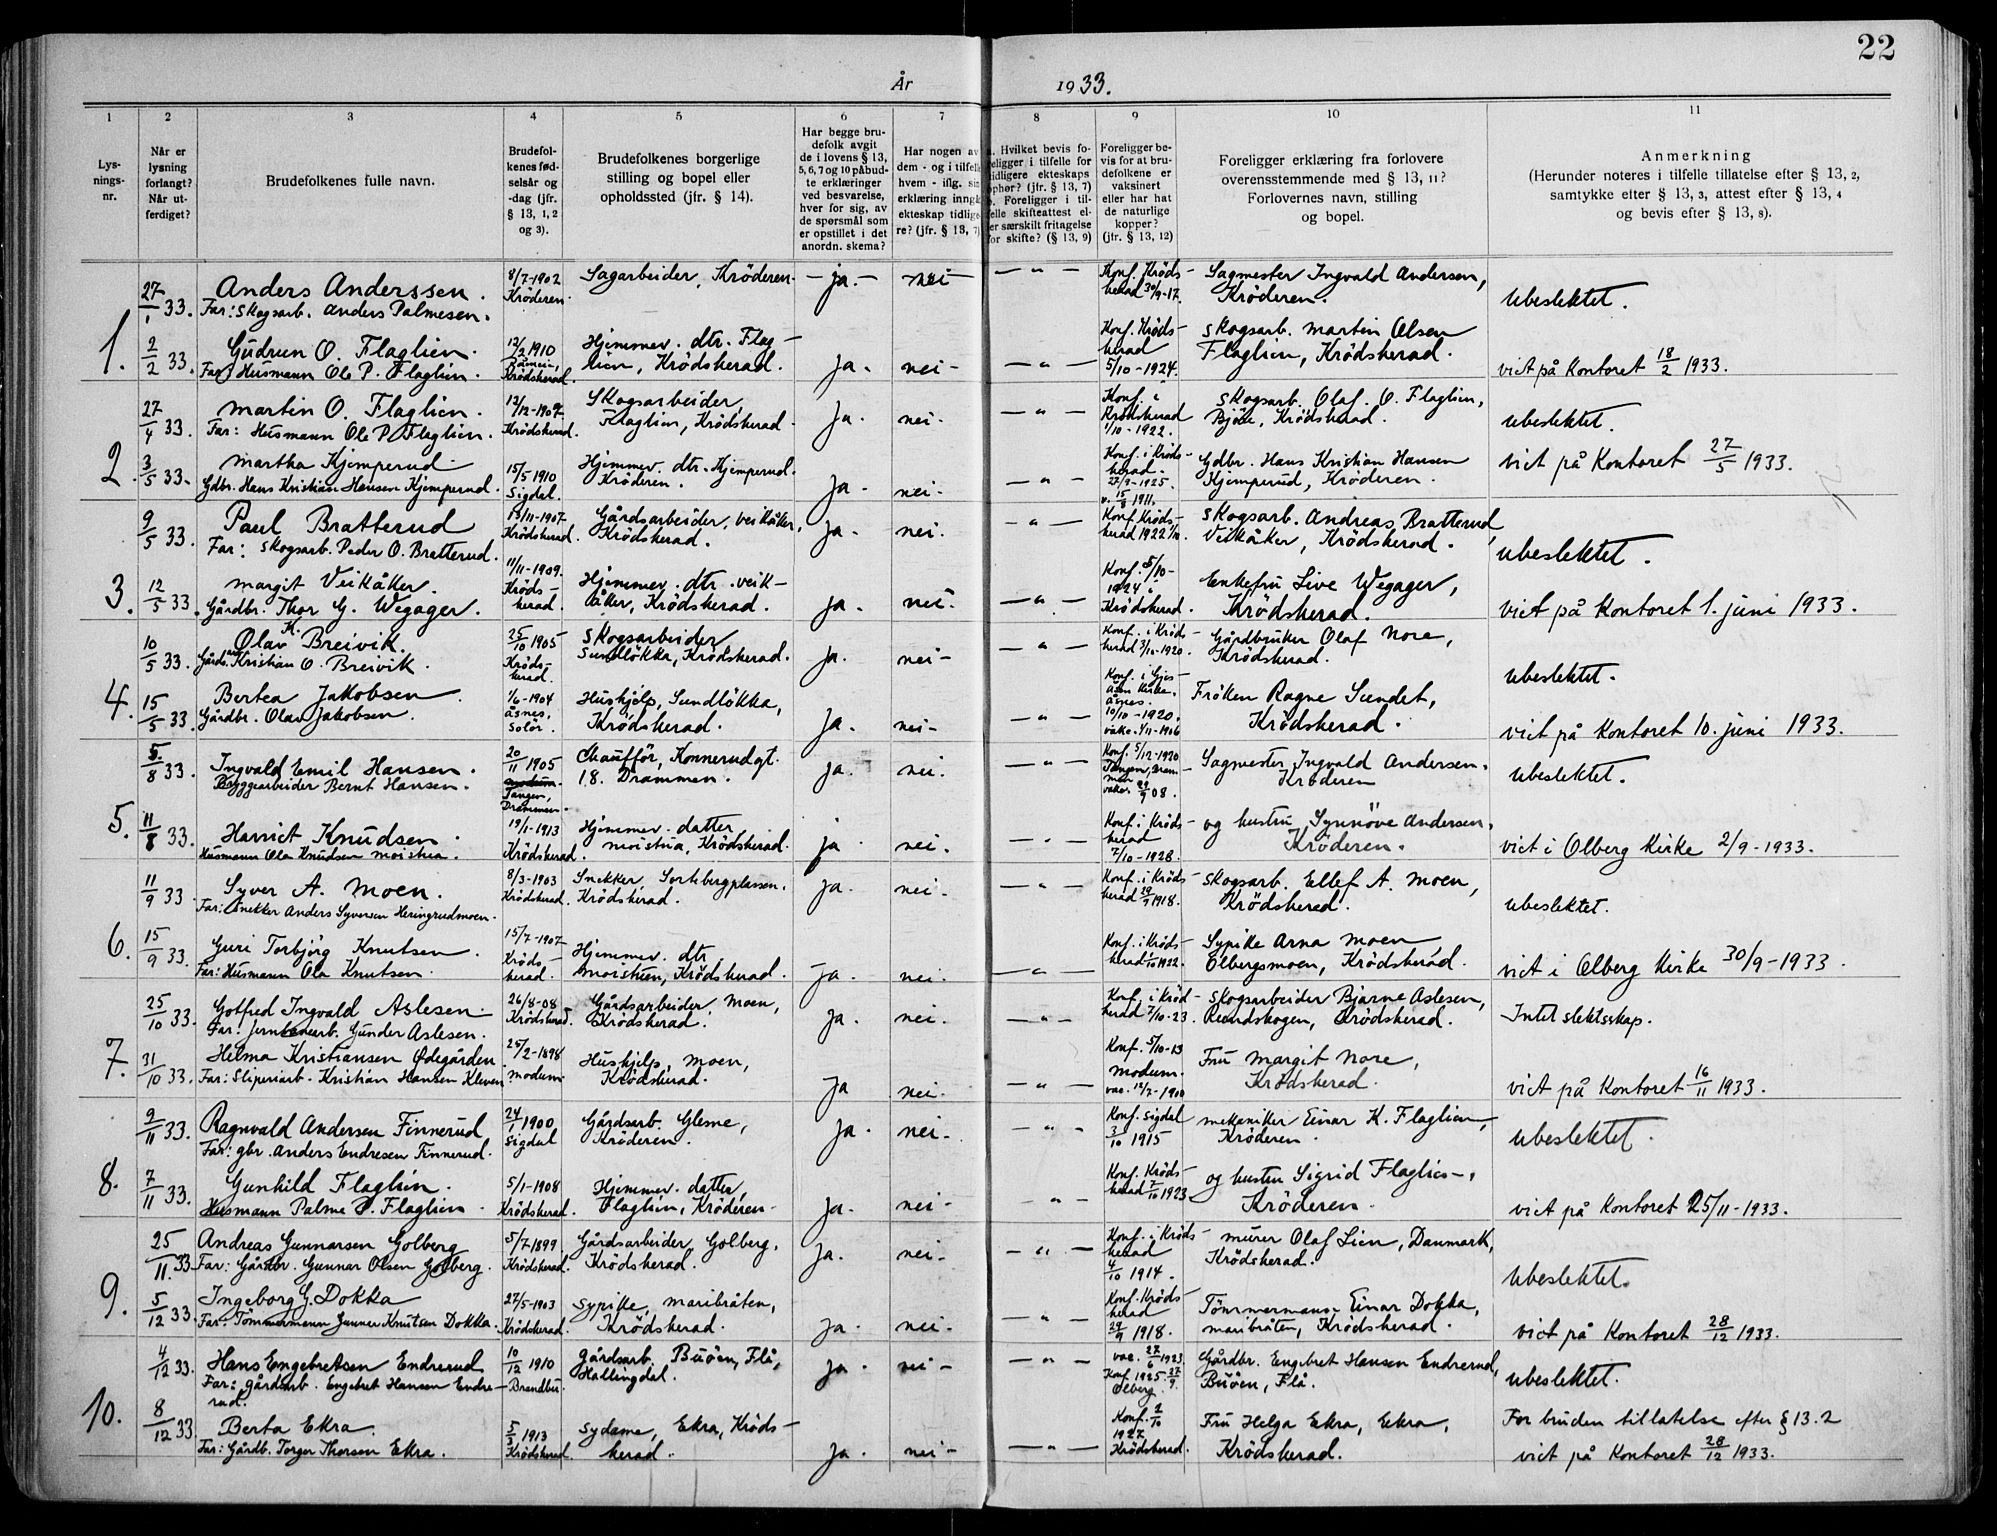 22
År 1933.
1 2 3 4 5 6 7 8 9 10 11
Lys-
nings-
nr.
Når er
lysning
forlangt?
Når ut-
ferdiget?
Brudefolkenes fulle navn.
Brudefol-
kenes fød-
selsår og
-dag (jfr.
§ 13, 1, 2
og 3).
Brudefolkenes borgerlige
stilling og bopel eller
opholdssted (jfr. § 14).
Har begge bru-
defolk avgit
de i lovens § 13,
5, 6, 7 og 10 påbud-
te erklæringer
ved besvarelse,
hver for sig, av
de spørsmål som
er opstillet i det
anordn. skema?
Har nogen av
dem - og i tilfelle
hvem - iflg. sin
erklæring inngått
ekteskap tidlige-
re? (jfr. § 13, 7)
a. Hvilket bevis fo-
religger i tilfelle for
tidligere ekteskaps
ophør? (jfr. § 13, 7)
b. Foreligger i til-
felle skifteattest el-
ler særskilt fritagelse
for skifte? (§ 13, 9)
Foreligger be-
vis for at bru-
defolkene er
vaksinert
eller har hat
de naturlige
kopper?
(jfr. § 13, 12)
Foreligger erklæring fra forlovere
overensstemmende med § 13, 11?
Forlovernes navn, stilling
og bopel.
Anmerkning
(Herunder noteres i tilfelle tillatelse efter § 13, 2,
samtykke efter § 13, 3, attest efter § 13, 4
og bevis efter § 13, 8).
1.
27/1 33. Anders Anderssen.
Far: Skogsarb. Anders Palmesen.
8/7-1902
Kröderen.
Sagarbeider, Kröderen.
- ja. - nei - - " -
Konf. Kröds-
herad 30/9-17.
Sagmester Ingvald Andersen,
Kröderen.
Ubeslektet.
2/2 33. Gudrun O. Flaglien.
Far: Husmann Ole P. Flaglien.
12/2 1910
Krödsherad.
Hjemmev. dtr. Flag-
lien, Krödsherad.
ja. nei - - " -
Konf. Kröds-
herad
5/10-1924.
Skogsarb. Martin Olsen
Flaglien, Krödsherad.
viet på Kontoret 18/2 1933.
2.
27/4 33. Martin O. Flaglien.
Far: Husmann Ole P. Flaglien.
12/12-1907
Krödsherad.
Skogsarbeider,
Flaglien, Krödsherad.
ja. nei. - " -
Konf. i
Krödsherad
1/10-1922.
Skogsarb. Olaf. O. Flaglien,
Björe, Krödsherad.
Ubeslektet.
3/5 33. Martha Kjemperud.
Gdbr. Hans Kristian Hansen Kjemperud.
15/5 1910
Sigdal.
Hjemmev. dtr. Kjemperud.
Kröderen.
ja. nei. - " -
Konf. i Kröds-
herad.
27/9-1925.
v. 15/8 1911.
Gdbr. Hans Kristian Hansen
Kjemperud, Kröderen.
viet på Kontoret 27/5 1933.
3.
9/5 33. Paul Bratterud
Far: Skogsarb. Peder O. Bratterud.
13/11-1907
Krödsherad.
Gårdsarbeider, Veikåker,
Krödsherad.
ja. nei. - " -
Konf. Kröds-
herad 1922 1/10.
Skogsarb. Andreas Bratterud,
Veikåker, Krödsherad.
Ubeslektet.
12/5 33. Margit Veikåker.
Gårdbr. Thor G. Wegager.
11/11-1909.
Kröds-
herad.
Hjemmev. dtr. Veik-
åker, Krödsherad.
ja. nei. - " -
Konf. 5/10-
1924.
Krödsherad.
Enkefru Live Wegager,
Krödsherad.
viet på Kontoret 1. juni 1933.
4.
10/5 33. Olav K. Breivik.
Gårdb. Kristian O. Breivik.
25/10 1905
Kröds-
herad.
Skogsarbeider
Sundlökka, Krödsherad.
ja. nei - - " -
Konf. i Kröds-
herad 3/10-1920.
Gårdbruker Olaf Nore,
Krödsherad.
Ubeslektet.
15/5 33. Bertea Jakobsen.
Gårdbr. Olav Jakobsen.
1/6-1904
Åsnes,
Solör.
Hushjelp, Sundlökka,
Krödsherad.
ja. nei - - " -
Konf. i Gjes-
åsen Kirke,
Åsnes.
10/10-1920.
vakc. 4/11-1906
Fröken Ragne Sundet,
Krödsherad.
viet på Kontoret 10. juni 1933.
5.
5./8 33. Ingvald Emil Hansen.
Bryggearbeider Bernt Hansen.
20/11 1905
Tangen,
Drammen.
Chaufför, Konnerudgt.
18. Drammen.
ja. nei. - " -
Konf. 5/12-1920
Tangen, Dram-
men
vakc. 29/9 08.
Sagmester Ingvald Andersen.
Kröderen
Ubeslektet.
11/8 33. Harriet Knudsen.
Husmann Ola Knudsen Moistua.
19/1-1913
Krödsherad.
Hjemmev. datter,
Moistua, Krödsherad.
ja. nei. - " -
Konf. i Kröds-
herad
7/10-1928.
og hustru Synnöve Andersen,
Kröderen.
viet i Olberg Kirke 2/9-1933.
6.
11/9 33. Syver A. Moen.
Far: Snekker Anders Syversen Heringrudmoen.
8/3-1903
Krödsherad.
Snekker, Sortebergplassen,
Krödsherad.
ja. nei. - " -
Konf. i Kröds-
herad 19/9 1918.
Skogsarb. Ellef A. Moen,
Krödsherad.
Ubeslektet.
15/9 33. Guri Torbjörg Knutsen.
Far: Husmann Ola Knutsen.
15/7-1907
Kröds-
herad.
Hjemmev. dtr,
Moistuen, Krödsherad.
ja. nei. - " -
Konf. i Kröds-
herad 1/10 1922.
Sypike Arna Moen
Olbergsmoen, Krödsherad.
viet i Olberg Kirke 30/9-1933.
7.
25/10 33. Gotfred Ingvald Aslesen.
Far: Jernbanearb. Gunder Aslesen.
26/8-08
Krödsherad.
Gårdsarbeider, Moen,
Krödsherad.
ja. nei. - " -
Konf. i Kröd-
herad 7/10-23.
Skogsarbeider Bjarne Aslesen,
Rundskogen, Krödsherad.
Intet slektsskap.
31/10 33. Helma Kristiansen Ødegården
Far: Sliperiarb. Kristian Hansen Kleven.
25/2-1898
Modum
Hushjelp, Moen,
Krödsherad.
ja nei. - " -
Konf. 5/10-13
Modum.
vac. 12/7-1900
Fru Margit Nore,
Krödsherad.
viet på Kontoret 16/11 1933.
8.
2/11 33. Ragnvald Andersen Finnerud
Far: gbr. Anders Endresen Finnerud.
24/1 1900
Sigdal
Gårdsarb. Glesne,
Kröderen.
ja. nei. - " -
Konf. Sigdal
3/10 1915
Mekaniker Einar K. Flaglien,
Kröderen.
Ubeslektet.
7/11 33. Gunhild Flaglien.
Husmann Palme P. Flaglien.
5/1-1908
Krödsherad.
Hjemmev. datter,
Flaglien, Kröderen.
ja. nei - - " -
Konf. Kröds-
herad 7/10 1923
og hustru Sigrid Flaglien,
Kröderen.
viet på Kontoret 25/11-1933.
9.
25/11. 33. Andreas Gunnarsen Golberg
Far: Gårdbr. Gunnar Olsen Golberg.
5/7 1899
Krödsherad.
Gårdsarbeider, Golberg,
Krödsherad.
ja. nei - - " -
Konf. i Kröds-
herad
4/10 1914.
Murer Olaf Lien, Danmark,
Krödsherad.
Ubeslektet.
5/12 33. Ingeborg G. Dokka
Far: Tömmermann Gunner Knutsen Dokka.
27/5-1903
Krödsherad.
Sypike, Maribråten,
Krödsherad.
ja. nei. - " -
Konf. Kröds-
herad
29/9 1918.
Tömmermann Einar Dokka,
Maribråten, Krödsherad.
viet på Kontoret 28/12 1933.
10.
4/12 33. Hans Engebretsen Endrerud
Far: gårdsarb. Engebret Hansen Endre-
rud.
10/12 1910
Brandbu.
Gårdsarb. Buöen, Flå,
Hallingdal.
ja. nei - - " -
vac. 27/6 1923
Konf. 1925 27/9.
Olberg.
Gårdbr. Engebret Hansen Endrerud,
Buöen, Flå.
Ubeslektet.
8/12 33. Berta Ekra.
Far: Gårdb. Torger Thorsen Ekra.
5/3 1913
Krödsherad.
Sydame, Ekra, Kröds-
herad.
ja. nei - - " -
Konf. 2/10
1927
Krödsherad.
Fru Helga Ekra, Ekra,
Krödsherad.
For bruden tillatelse efter § 13.2
viet på Kontoret 28/12 1933.